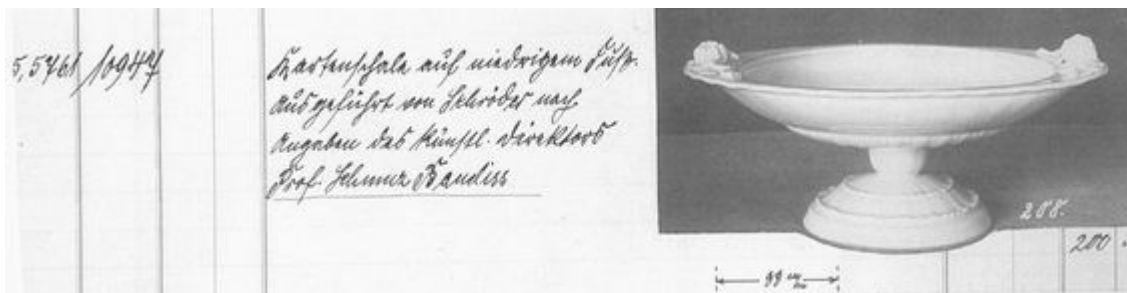 5,5761 / 10947
Kartenschale auf niedrigem Fuß.
Ausgeführt von Schröder nach
Angaben des künstl. Direktors
Prof. Schmuz Baudiss
208.
200
99 m/m